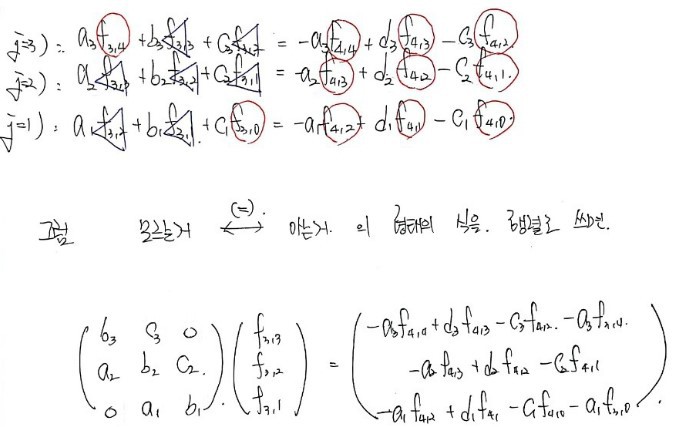 j=3) : a₃f₃,₄ + b₃f₃,₃ + c₃f₃,₂ = -a₃f₄,₄ + d₃f₄,₃ - c₃f₄,₂
j=2) : a₂f₃,₃ + b₂f₃,₂ + c₂f₃,₁ = -a₂f₄,₃ + d₂f₄,₂ - c₂f₄,₁.
j=1) : a₁f₃,₂ + b₁f₃,₁ + c₁f₃,₀ = -a₁f₄,₂ + d₁f₄,₁ - c₁f₄,₀.
(=).
그럼 모르는거 ⟷ 아는거. 의 형태의 식을. 행렬로 쓰면.
b₃ c₃ 0 f₃,₃ -a₃f₄,₄ + d₃f₄,₃ - c₃f₄,₂. - a₃f₃,₄.
a₂ b₂ c₂. f₃,₂ = -a₂f₄,₃ + d₂f₄,₂ - c₂f₄,₁
0 a₁ b₁. f₃,₁ -a₁f₄,₂ + d₁f₄,₁ - c₁f₄,₀ - a₁f₃,₀.